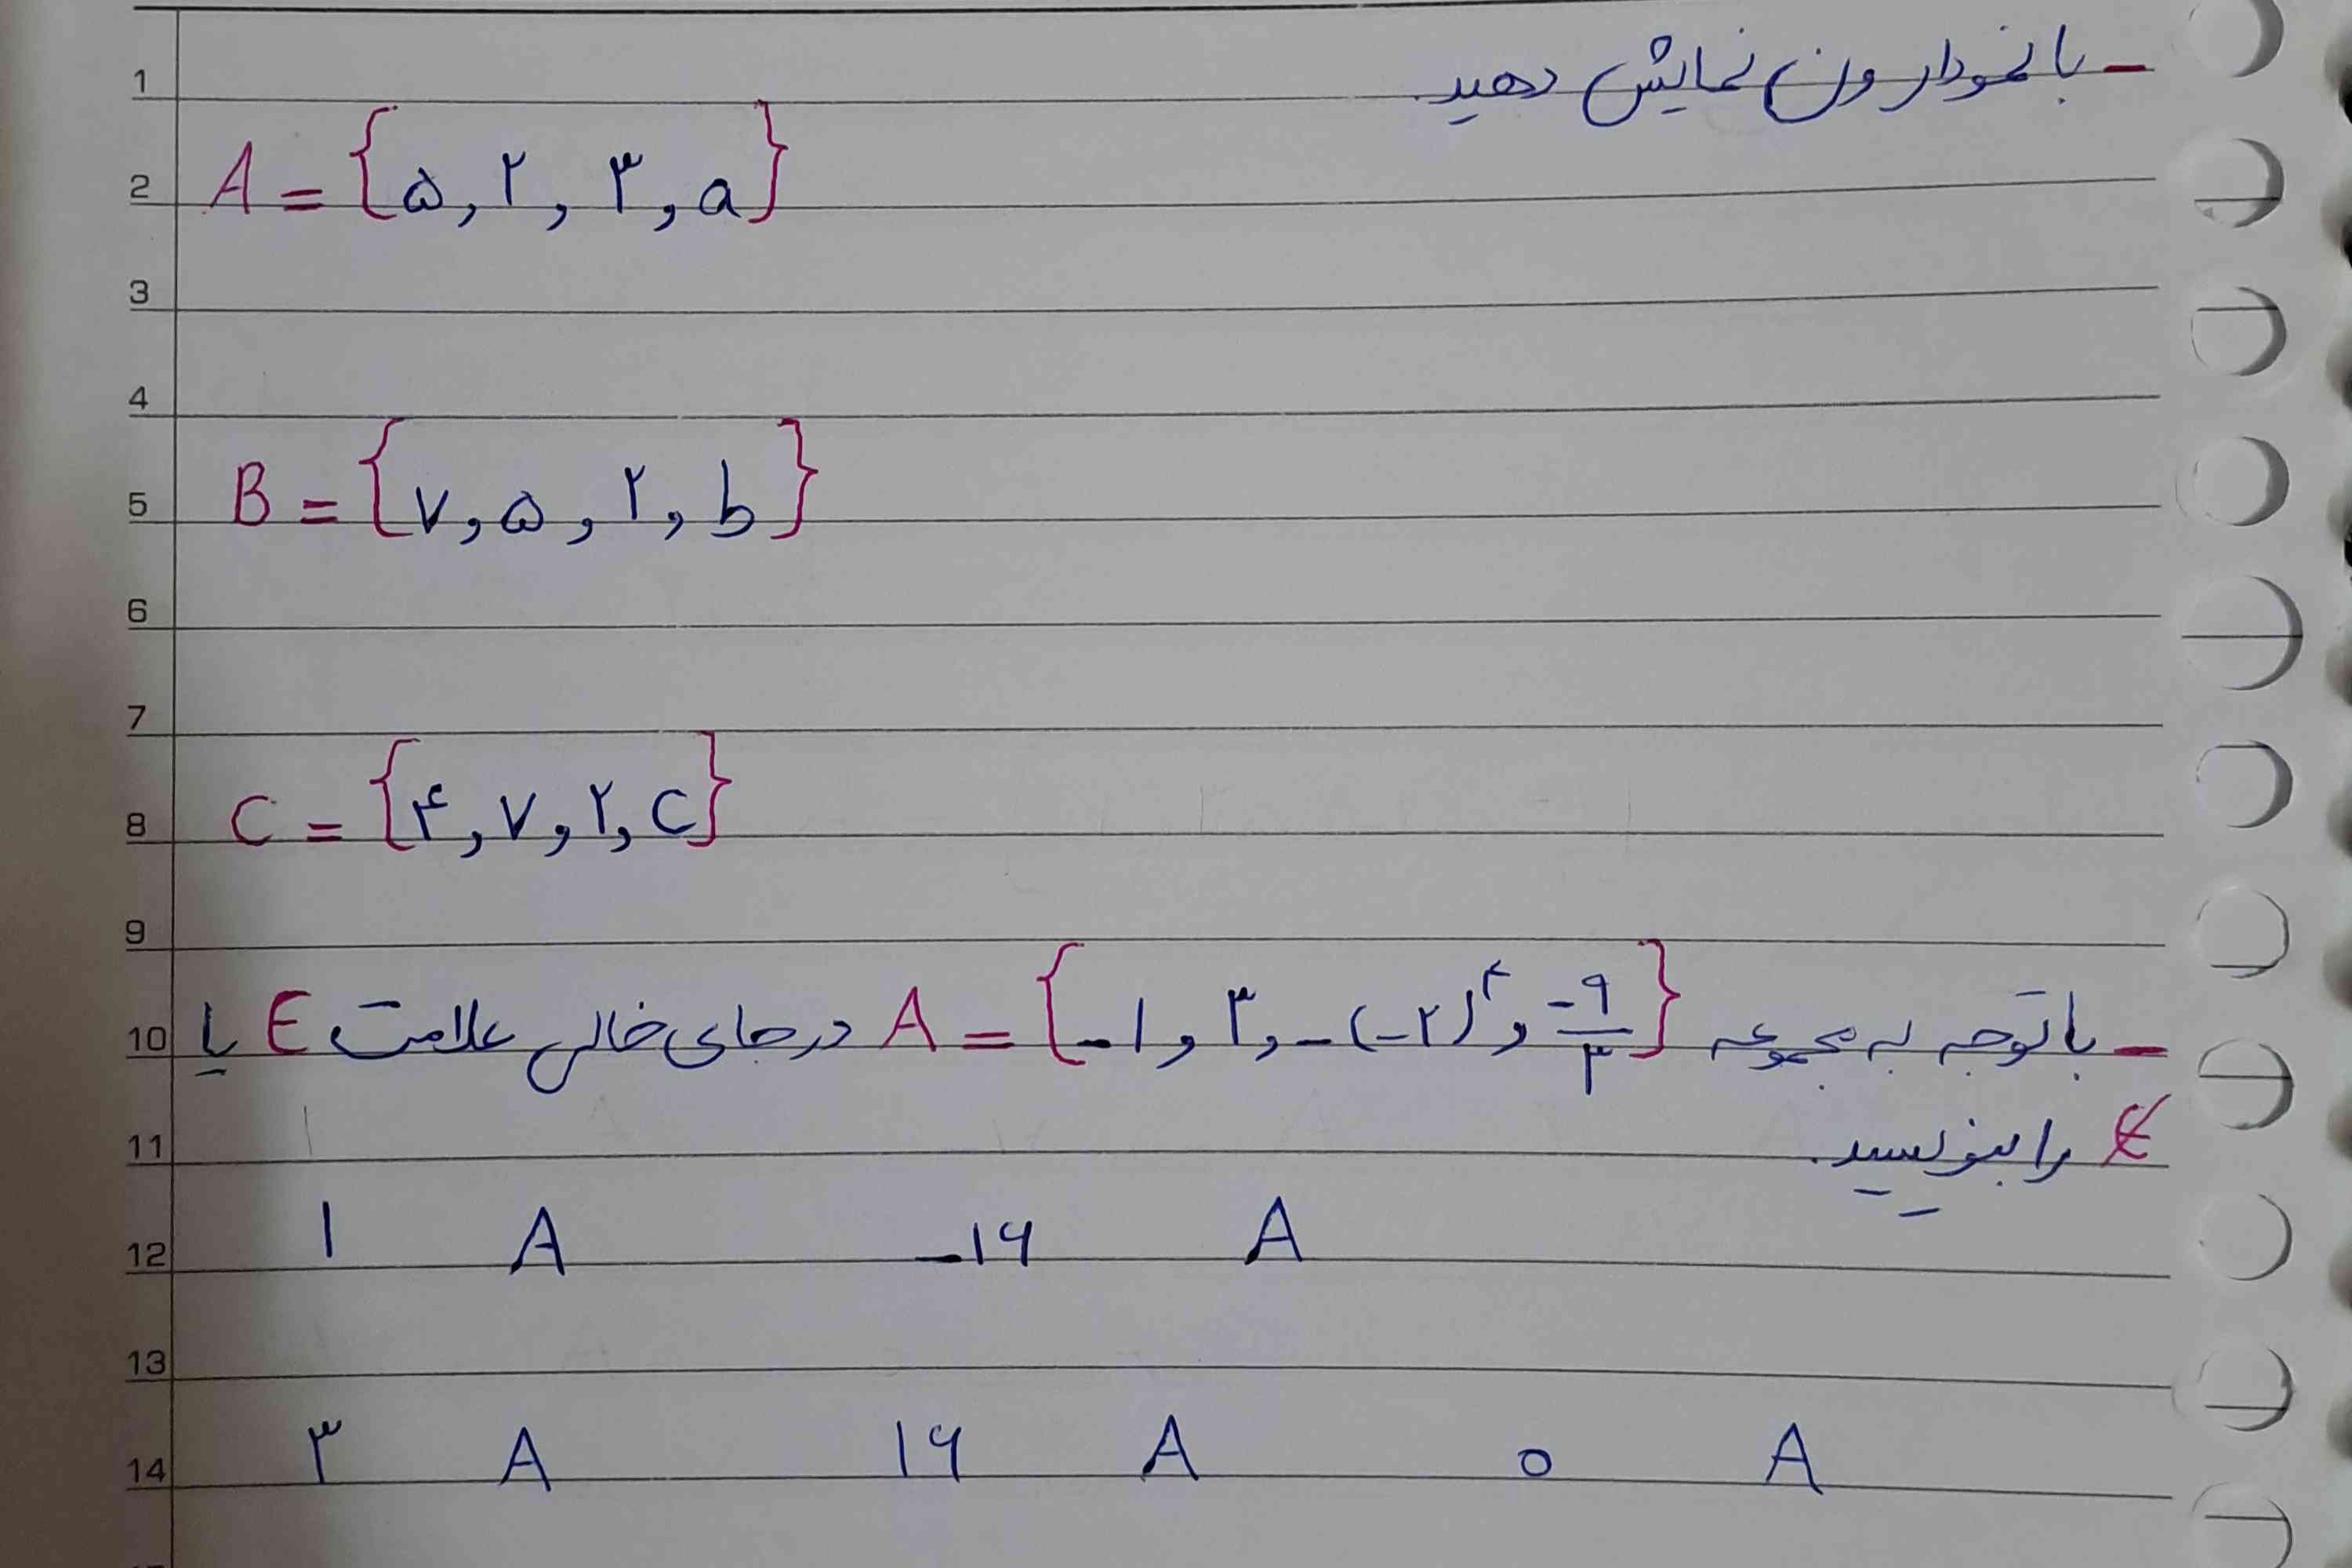 1
ـ با نمودار ون نمایش دهید.
2 A = {۵, ۲, ۳, a}
3
4
5 B = {۷, ۵, ۲, b}
6
7
8 C = {۴, ۷, ۲, c}
9
10 ـ با توجه به مجموعه A = {-۱, ۳, -(-۲)^۴, -۹/۳} در جای خالی علامت ∈ یا
11 ∉ را بنویسید.
12 ۱ A -۱۶ A
13
14 ۳ A ۱۶ A ۰ A